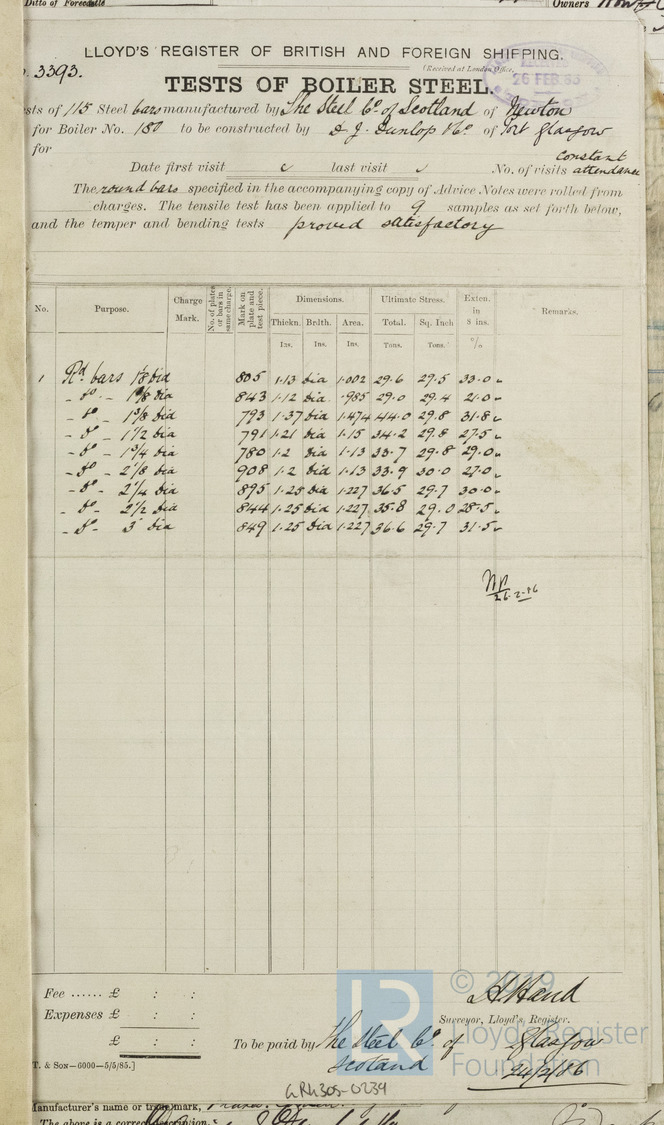 Ditto of Forecastle
Owners
LLOYD'S REGISTER OF BRITISH AND FOREIGN SHIPPING.
(Received at London Office,
26 FEB
3393.
TESTS OF BOILER STEEL.
sts of 115 Steel bars manufactured by The Steel Co. of Scotland of Newton
for Boiler No. 180 to be constructed by D. J. Dunlop & Co. of Port Glasgow
for
Date first visit last visit No. of visits constant attendance
The round bars specified in the accompanying copy of Advice Notes were rolled from
charges. The tensile test has been applied to 9 samples as set forth below,
and the temper and bending tests proved satisfactory
No. Purpose. Charge Mark. No. of plates or bars in same charge. Mark on plate and test piece. Dimensions. Ultimate Stress. Exten. in 8 ins. Remarks.
Thickn. Brdth. Area. Total. Sq. Inch
Ins. Ins. Ins. Tons. Tons. %
1 Rd. bars 1 1/8 dia 805 1.13 dia 1.002 29.6 29.5 33.0
- Do. - dia 843 1.12 dia .985 29.0 29.4 21.0
- Do. 1 3/8 dia 793 1.37 dia 1.474 44.0 29.8 31.8
- Do. 1 1/2 dia 791 1.21 dia 1.15 34.2 29.8 27.5
- Do. 1 3/4 dia 780 1.2 dia 1.13 33.7 29.8 29.0
- Do. 2 1/8 dia 908 1.2 dia 1.13 33.9 30.0 27.0
- Do. 2 1/4 dia 895 1.25 dia 1.227 36.5 29.7 30.0
- Do. 2 1/2 dia 844 1.25 dia 1.227 35.8 29.0 28.5
- Do. 3 dia 849 1.25 dia 1.227 36.6 29.7 31.5
26.2.86
© 2019
LR Lloyd's Register
Foundation
Fee ...... £ : :
Expenses £ : :
£ : :
Surveyor, Lloyd's Register.
To be paid by The Steel Co. of Scotland
Glasgow
24/2/86
T. & SON—6000—5/5/85.]
LRH305-0239
Manufacturer's name or trade mark,
The above is a correct description.